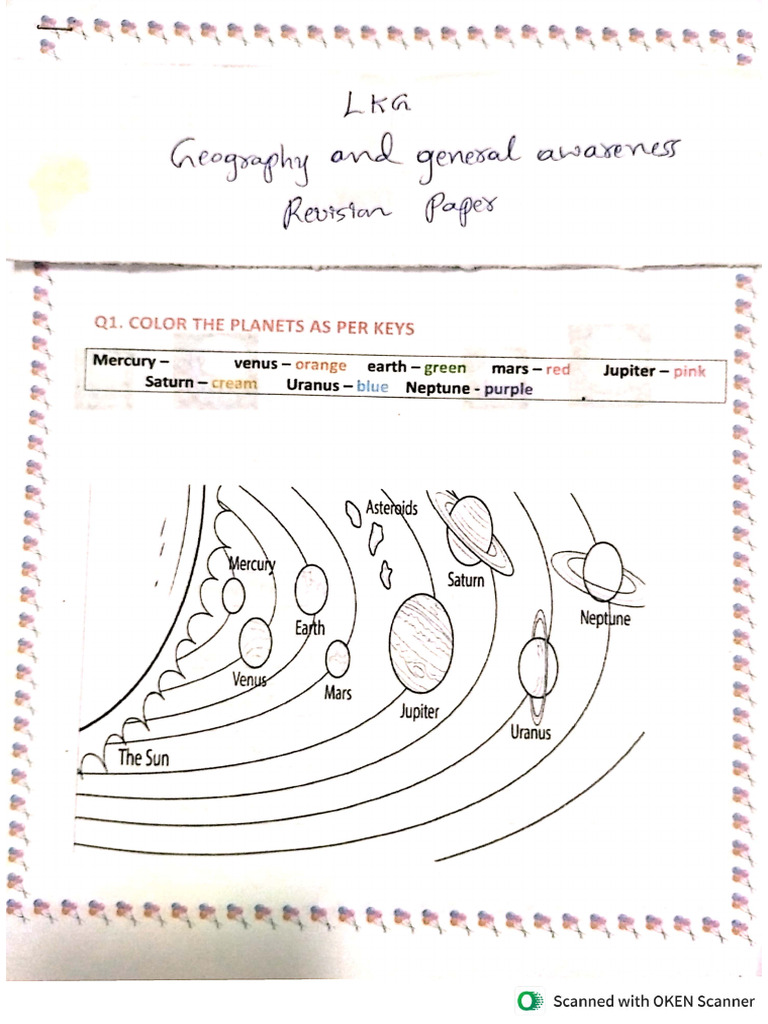 LKG
Geography and general awareness
Revision Paper
Q1. COLOR THE PLANETS AS PER KEYS
Mercury – venus – orange earth – green mars – red Jupiter – pink
Saturn – cream Uranus – blue Neptune - purple
Asteroids
Mercury
Saturn
Earth
Neptune
Venus
Mars
Jupiter
Uranus
The Sun
Scanned with OKEN Scanner